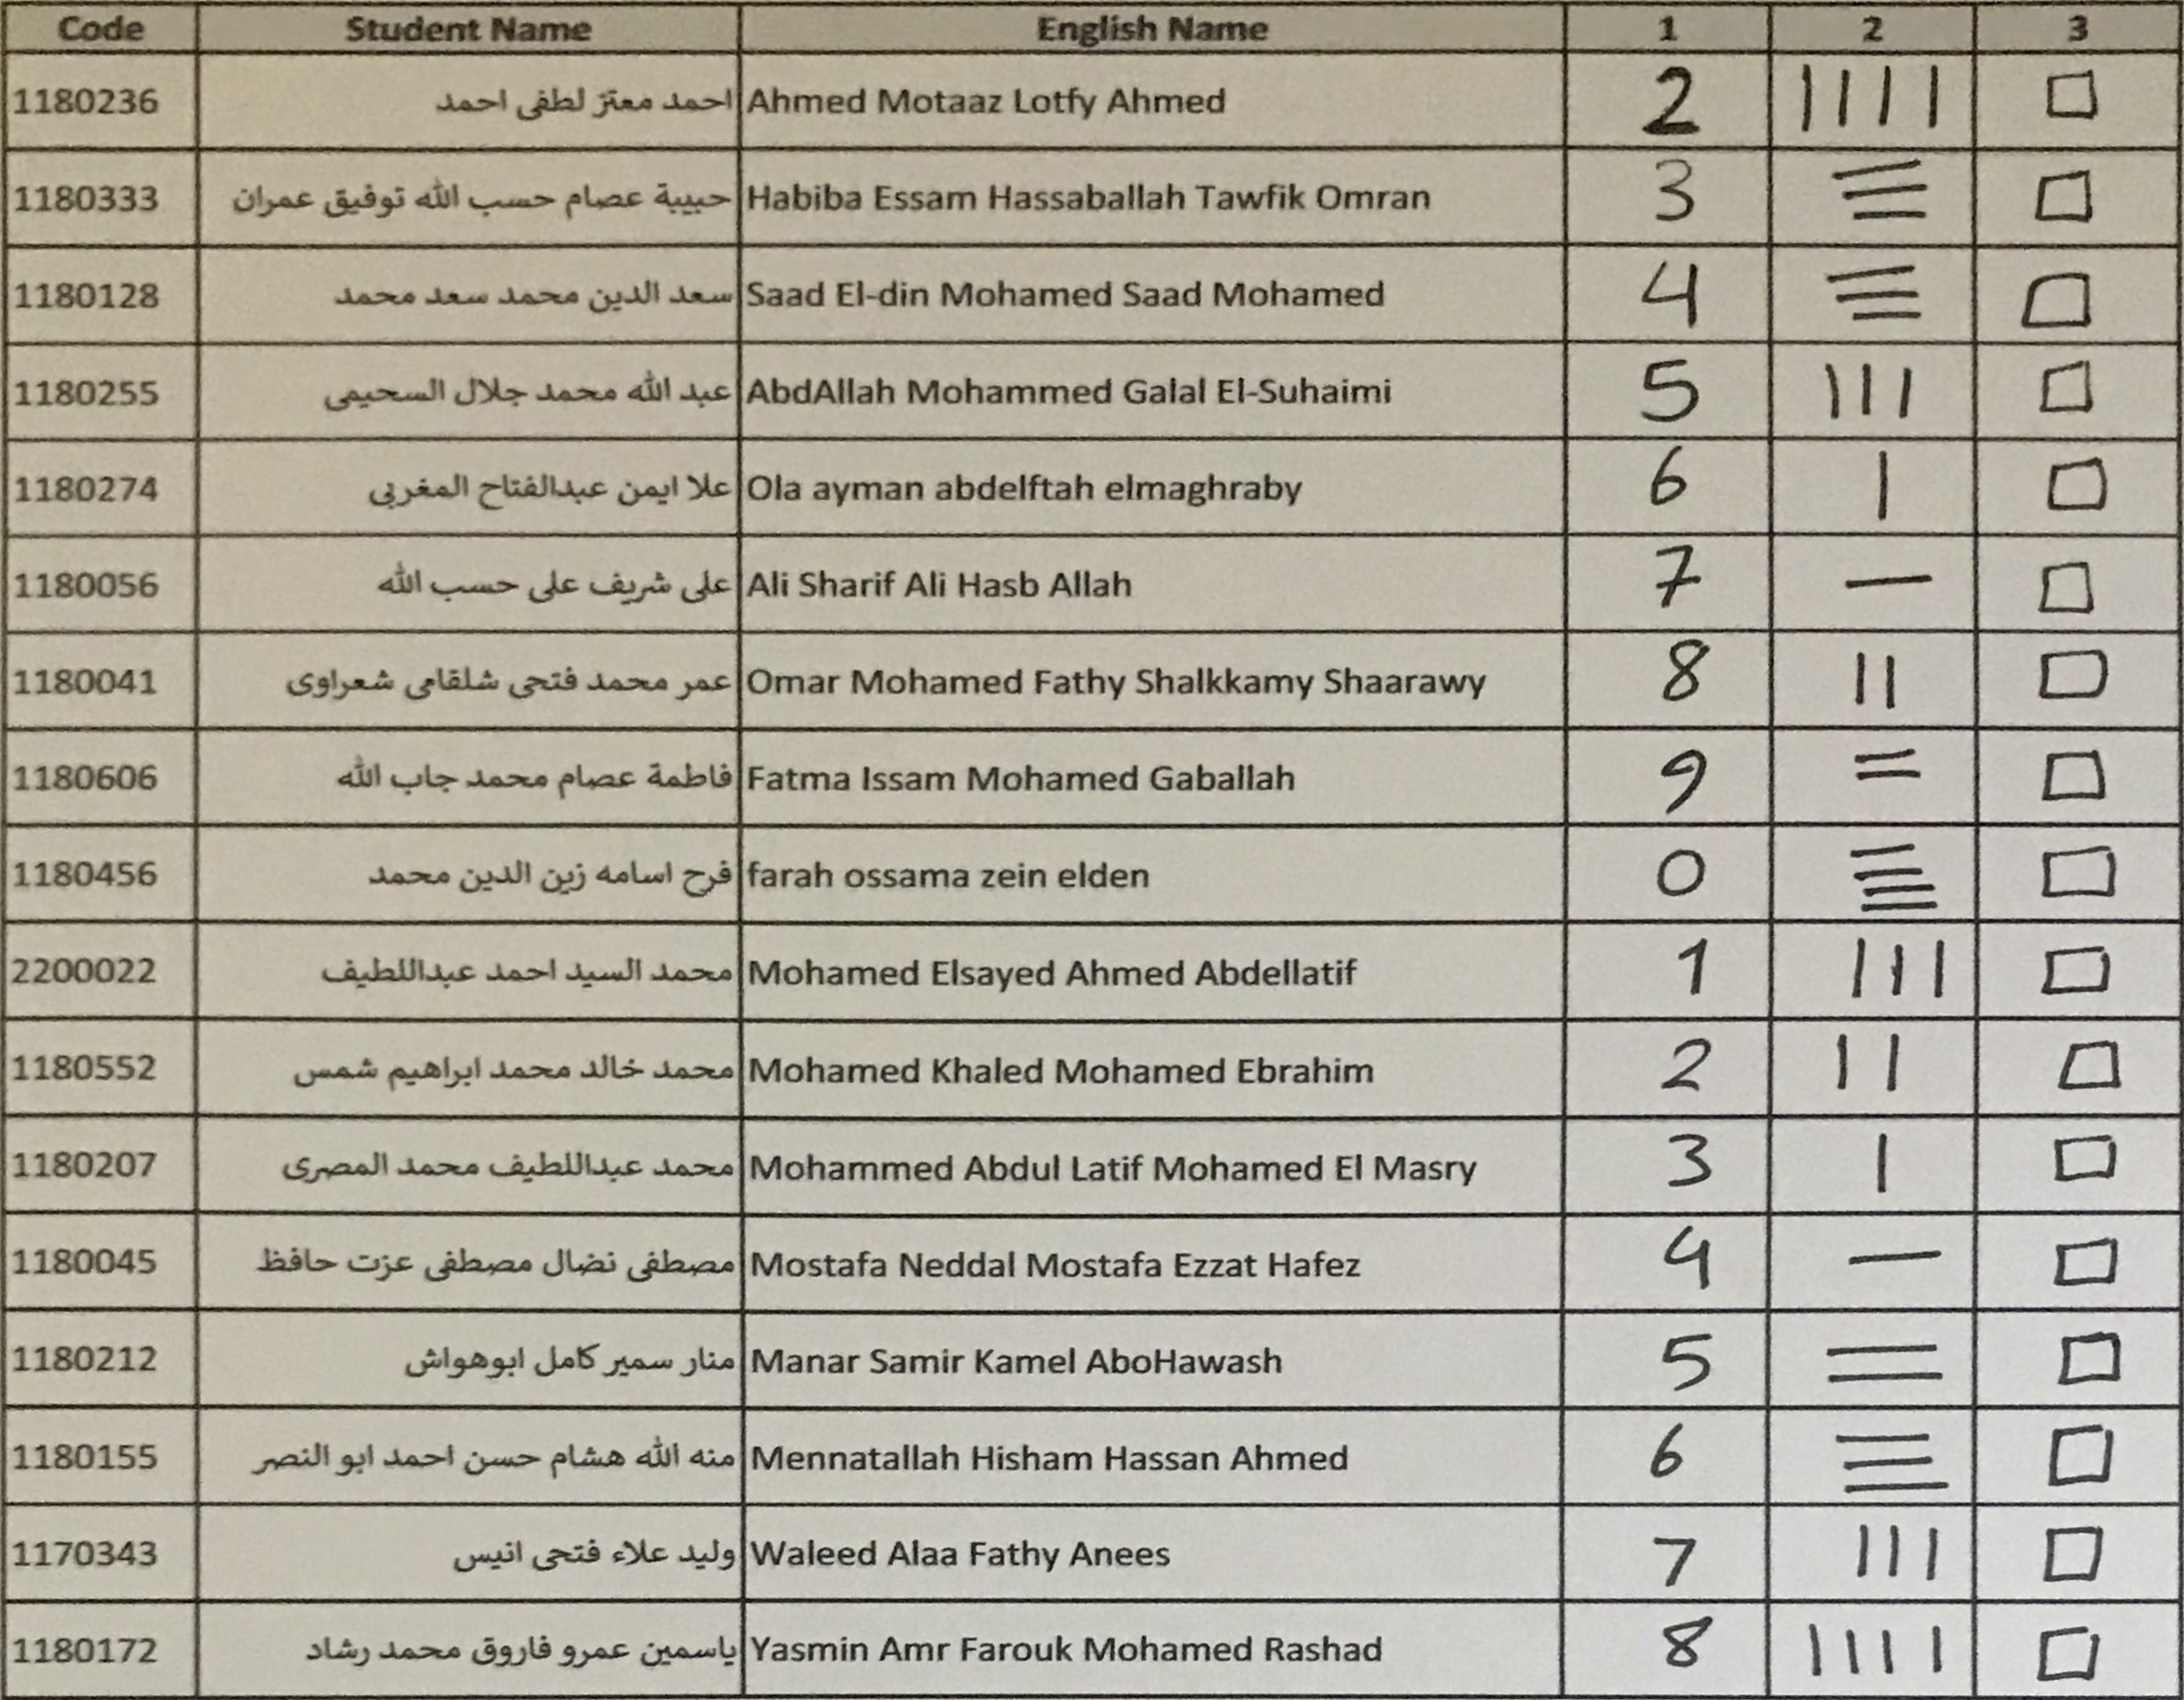 Code Student Name English Name 1 2 3
1180236 احمد معتز لطفى احمد Ahmed Motaaz Lotfy Ahmed 2 ||||  □
1180333 حبيبة عصام حسب الله توفيق عمران Habiba Essam Hassaballah Tawfik Omran 3 ☰ □
1180128 سعد الدين محمد سعد محمد Saad El-din Mohamed Saad Mohamed 4 ☰ □
1180255 عبد الله محمد جلال السحيمى AbdAllah Mohammed Galal El-Suhaimi 5 ||| □
1180274 علا ايمن عبدالفتاح المغربى Ola ayman abdelftah elmaghraby 6 | □
1180056 على شريف على حسب الله Ali Sharif Ali Hasb Allah 7 — □
1180041 عمر محمد فتحى شلقامى شعراوى Omar Mohamed Fathy Shalkkamy Shaarawy 8 || □
1180606 فاطمة عصام محمد جاب الله Fatma Issam Mohamed Gaballah 9 = □
1180456 فرح اسامه زين الدين محمد farah ossama zein elden 0 ≣ □
2200022 محمد السيد احمد عبداللطيف Mohamed Elsayed Ahmed Abdellatif 1 ||| □
1180552 محمد خالد محمد ابراهيم شمس Mohamed Khaled Mohamed Ebrahim 2 || □
1180207 محمد عبداللطيف محمد المصرى Mohammed Abdul Latif Mohamed El Masry 3 | □
1180045 مصطفى نضال مصطفى عزت حافظ Mostafa Neddal Mostafa Ezzat Hafez 4 — □
1180212 منار سمير كامل ابوهواش Manar Samir Kamel AboHawash 5 = □
1180155 منه الله هشام حسن احمد ابو النصر Mennatallah Hisham Hassan Ahmed 6 ☰ □
1170343 وليد علاء فتحى انيس Waleed Alaa Fathy Anees 7 ||| □
1180172 ياسمين عمرو فاروق محمد رشاد Yasmin Amr Farouk Mohamed Rashad 8 |||| □